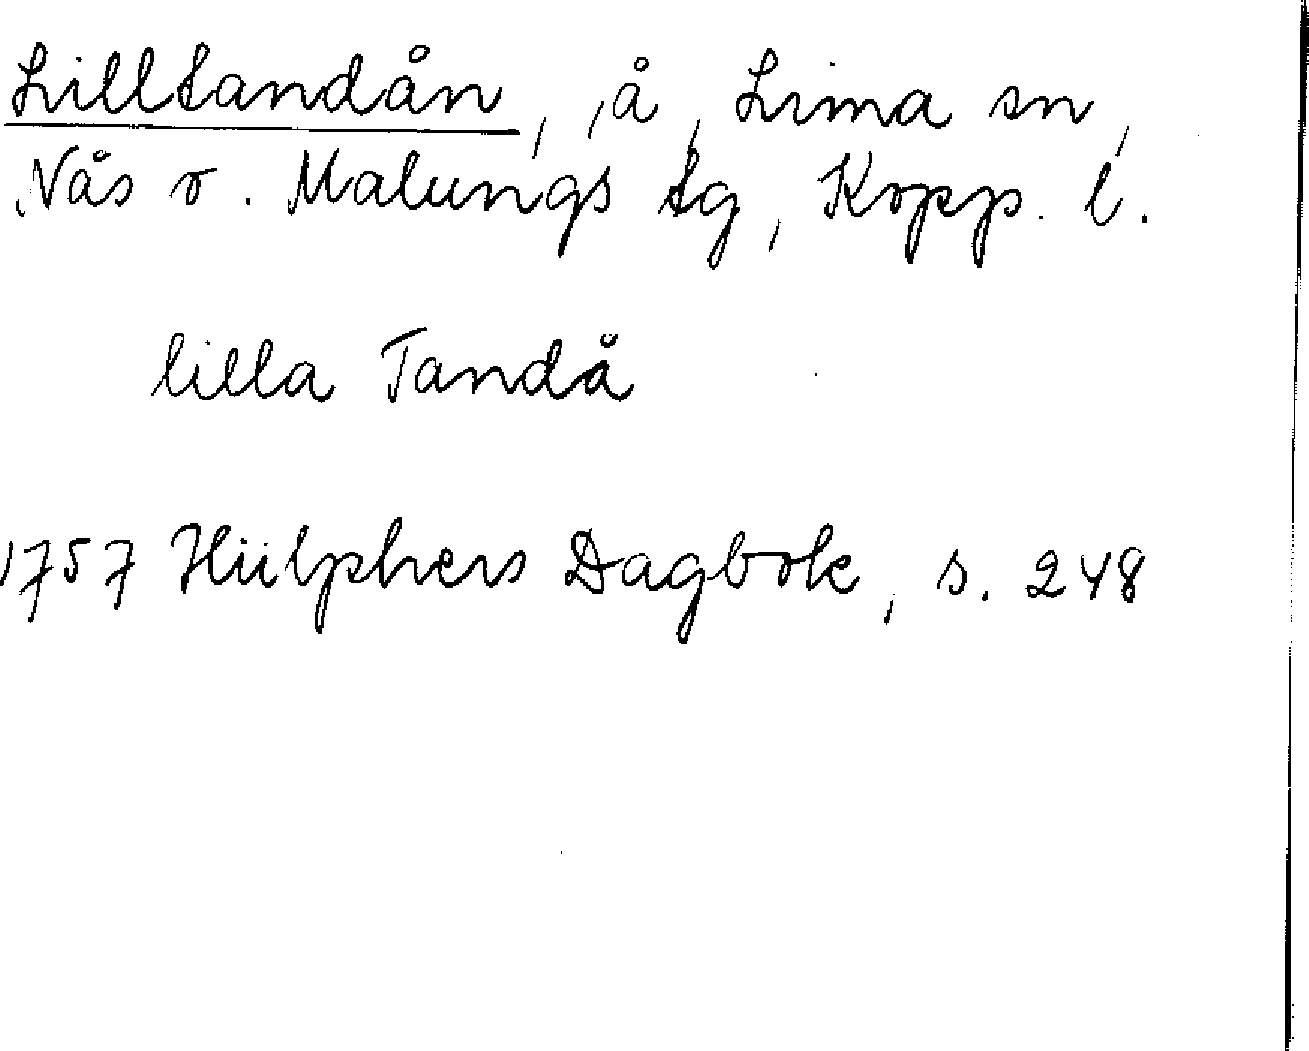 Lilltandån, å, Lima sn,
Nås o. Malungs tg, Kopp. l.
lilla Tandå
1757 Hülphers Dagbok, s. 248